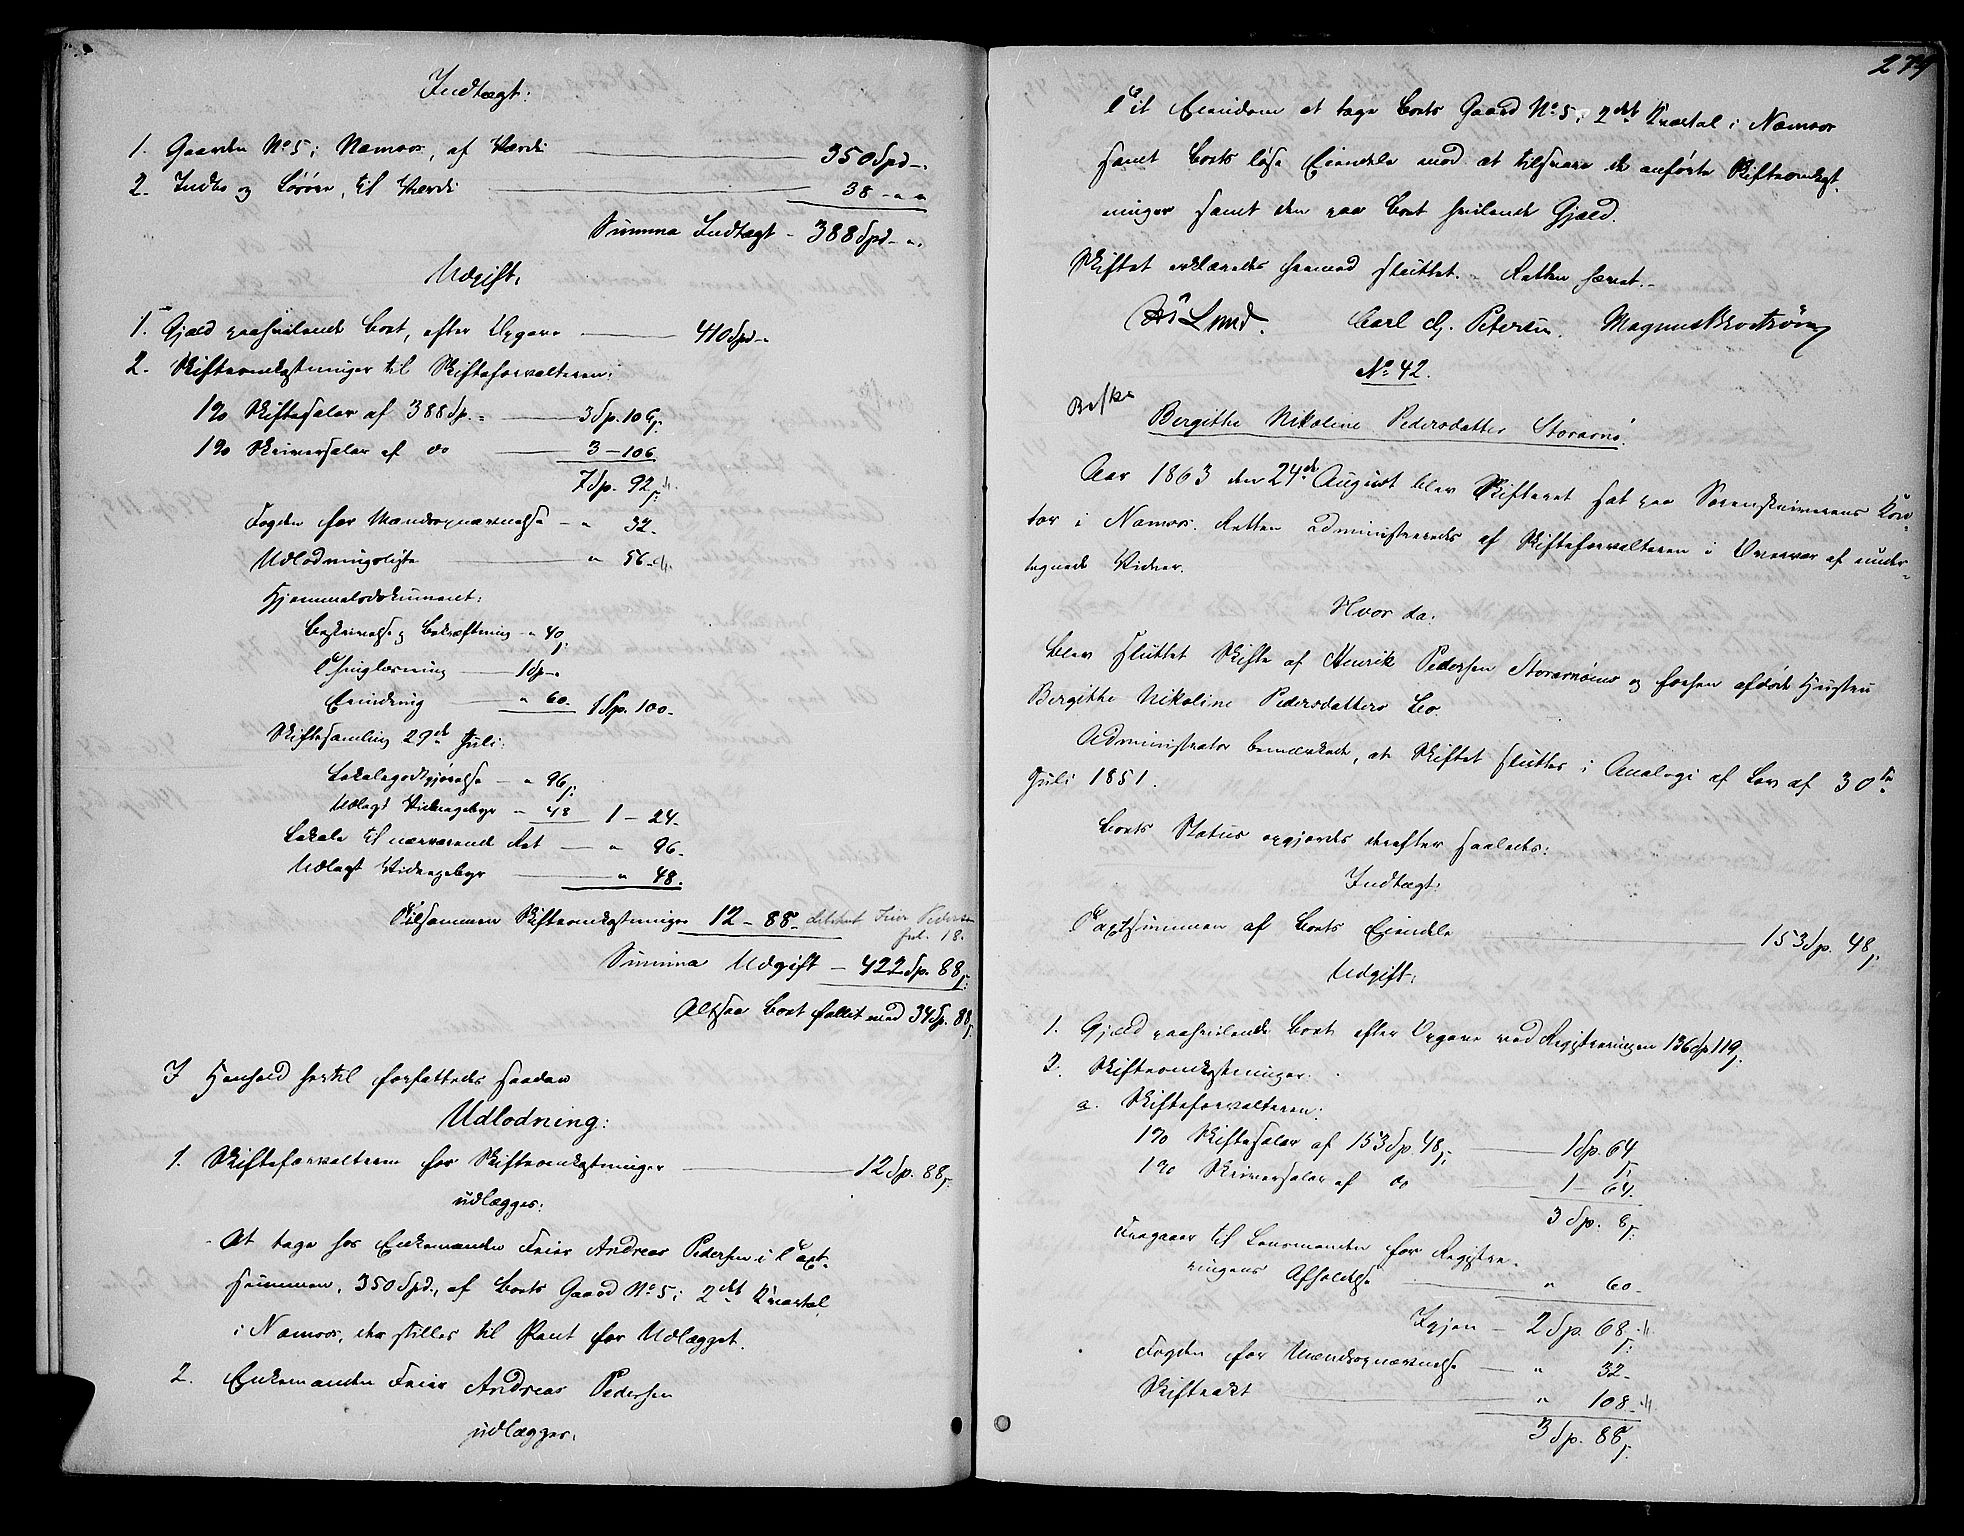 Indtægt:
1. Gaarden No 5 i Namsos, af Værdi — 350 Spd -"
2. Indbo og Løsøre, til Værdi — 38 - " "
Summa Indtægt - 388 Spd - ".
Udgift.
1. Gjæld paahvilende Boet, efter Opgave — 410 Spd -"
2. Skifteomkostninger til Skifteforvalteren:
1% Skiftesalær af 388 Sp. - — 3 Sp. 106 ß
1% Skriversalær af do — 3 - 106
7 Sp. 92 ß
Fogden for Mandsopnævnelse - " 32.
Udlodningsligte — " 56.
Hjemmelsdokument:
Beskrivelse og Bekræftning - " 40 ß
Thinglæsning — 1 Sp - "
Erindring — " 60. 1 Sp. 100.
Skiftesamling 29de Juli:
Lokalegodtgjørelse — " 96 ß
Udlagt Vidnegebyr - " 48 1 - 24.
Lokale til nærværende Ret — " 96.
Udlagt Vidnegebyr — " 48.
Tilsammen Skifteomkostninger 12 - 88. debitert Feier Pedersen
fol. 18.
Summa Udgift - 422 Sp. 88 ß
Altsaa Boet fallit med 34 Sp. 88 ß
I Henhold hertil forfattedes saadan
Udlodning:
1. Skifteforvalteren for Skifteomkostninger — 12 Sp. 88 ß
udlægges:
At tage hos Enkemanden Feier Andreas Pedersen i Taxt-
summen, 350 Spd., af Boets Gaard No 5 i 2det Kvartal
i Namsos, der stilles til Pant for Udlægget.
2. Enkemanden Feier Andreas Pedersen
udlægges:
274
Til Eiendom at tage Boets Gaard No 5 i 2det Kvartal i Namsos
samt Boets løse Eiendele mod at tilsvare de anførte Skifteomkost-
ninger samt den paa Boet hvilende Gjæld.
Skiftet erklæredes hermed sluttet. - Retten hævet. -
Lund. Carl G. Petersen. Magnus Brostrøm
No 42.
Besk.
Bergithe Nikoline Pedersdatter Storarnø.
Aar 1863 den 24de August blev Skifteret sat paa Sorenskriverens Kon-
tor i Namsos. Retten administreredes af Skifteforvalteren i Overvær af under-
tegnede Vidner.
Hvor da:
blev sluttet Skifte af Henrik Pedersen Storarnøens og hosen afdøde Hustru
Bergithe Nikoline Pedersdatters Bo.
Administrator bemærkede, at Skiftet sluttes i Analogi af Lov af 30te
Juli 1851.
Boets Status opgjordes derefter saaledes:
Indtægt:
Taxtsummen af Boets Eiendele — 153 Sp. 48 ß
Udgift:
1. Gjæld paahvilende Boet efter Opgave ved Registreringen 136 Sp 119 ß
2. Skifteomkostninger:
a. Skifteforvalteren:
1% Skiftesalær af 153 Sp. 48 ß — 1 Sp. 64 ß
1% Skriversalær af do — 1 - 64.
3 Sp. 8 ß
Fragaaer til Lensmanden for Registre-
ringens Afholdelse — " 60.
Igjen - 2 Sp. 68 ß
Fogden for Mandsopnævnelse — " 32.
Skifteakt — " 108.
3 Sp. 88 ß